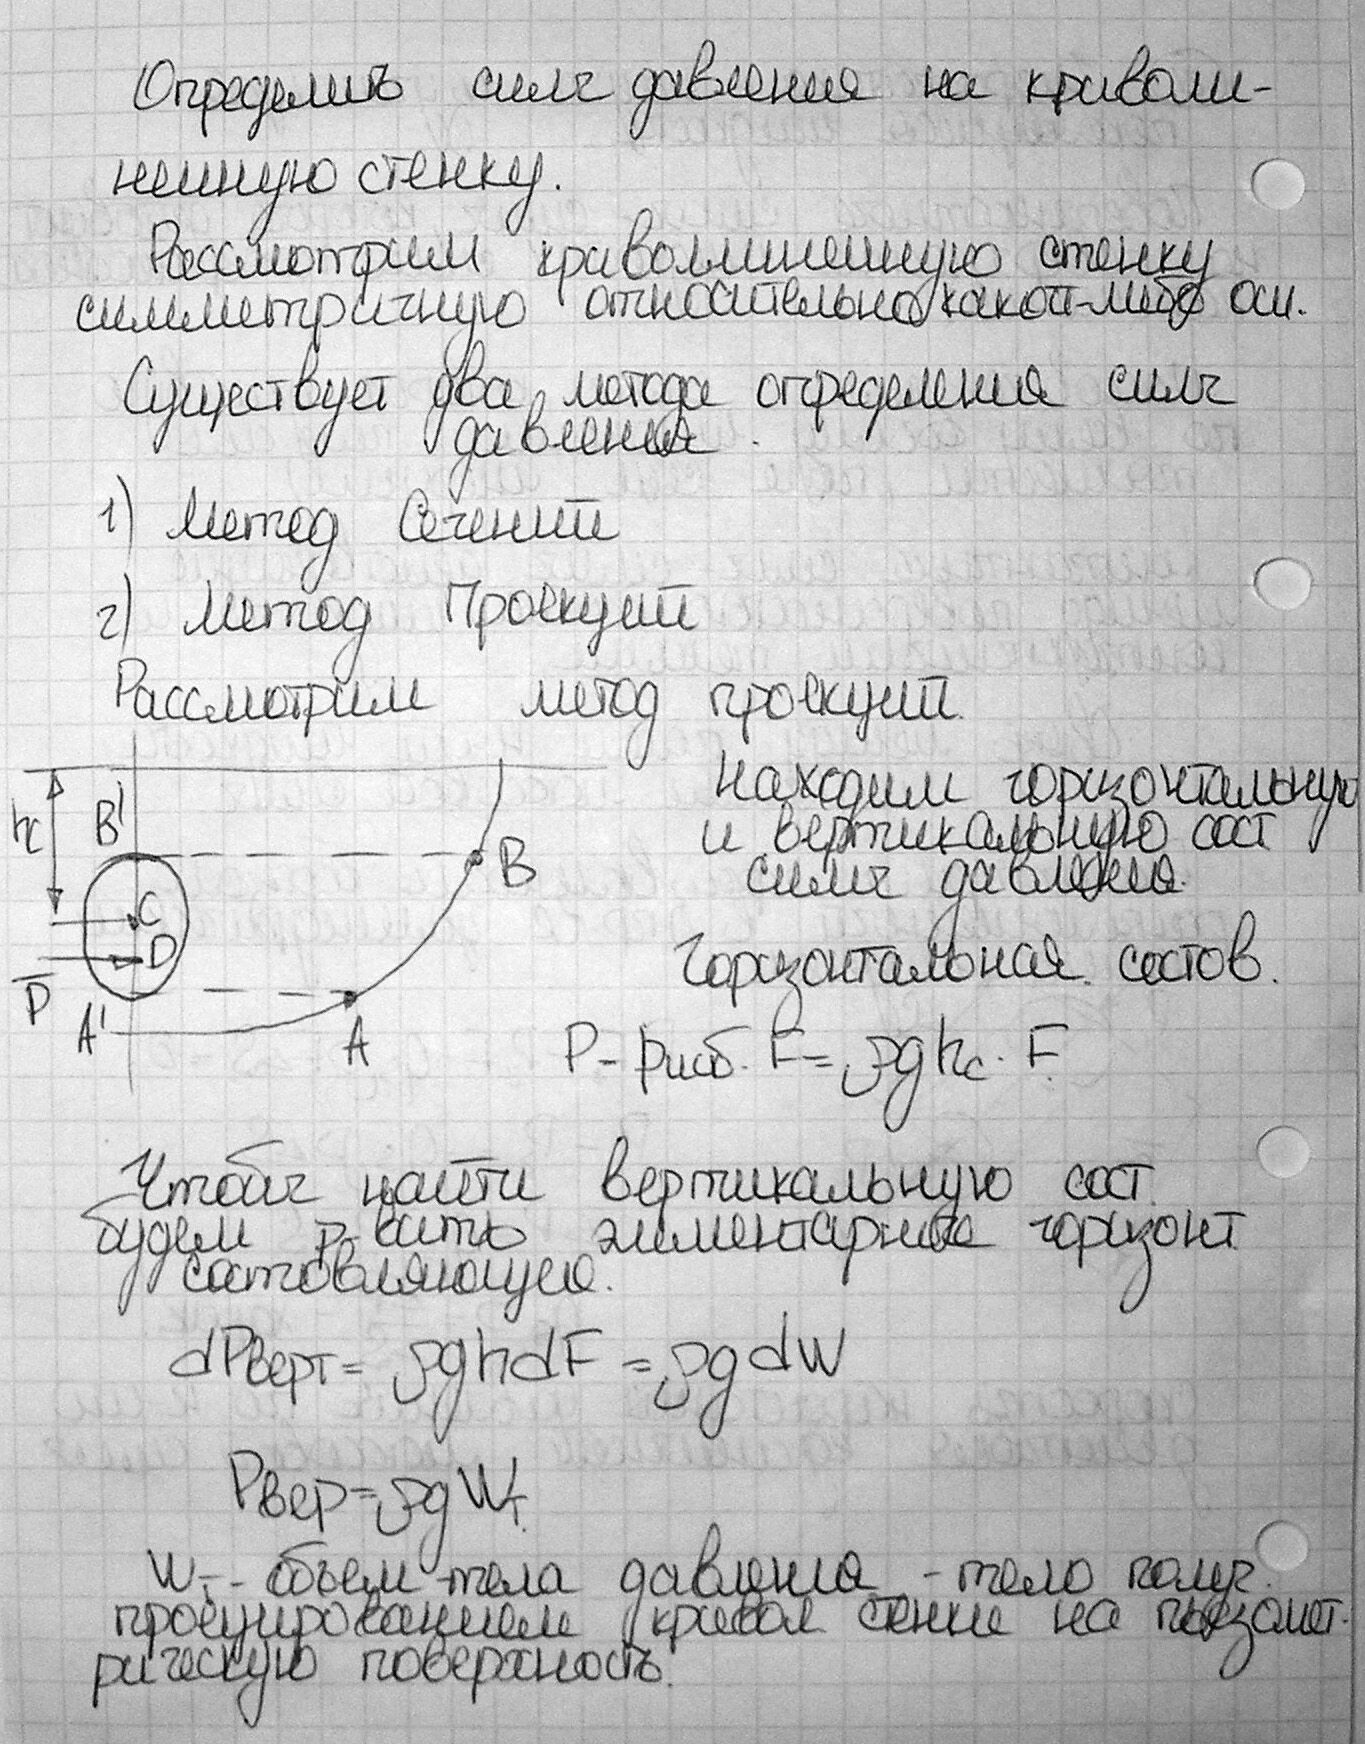 Определить силы давления на криволи-
нейную стенку.
Рассмотрим криволинейную стенку
симметричную относительно какой-либо оси.
Существует два метода определения силы
давления.
1) Метод Сечений
2) Метод Проекций
Рассмотрим метод проекций.
находим горизонтальную
и вертикальную сост
силы давления.
hc
B'
B
C
D
P
A'
A
Горизонтальная состов.
P = pизб. F = ρghc · F.
Чтобы найти вертикальную сост.
будем элементарное горизонт.
состовляющую.
dPверт = ρghdF = ρgdW
Pвер = ρgWт.
Wт - объем тела давления, - тело получ.
проецированием кривол стенки на пьезомет-
рическую поверхность.